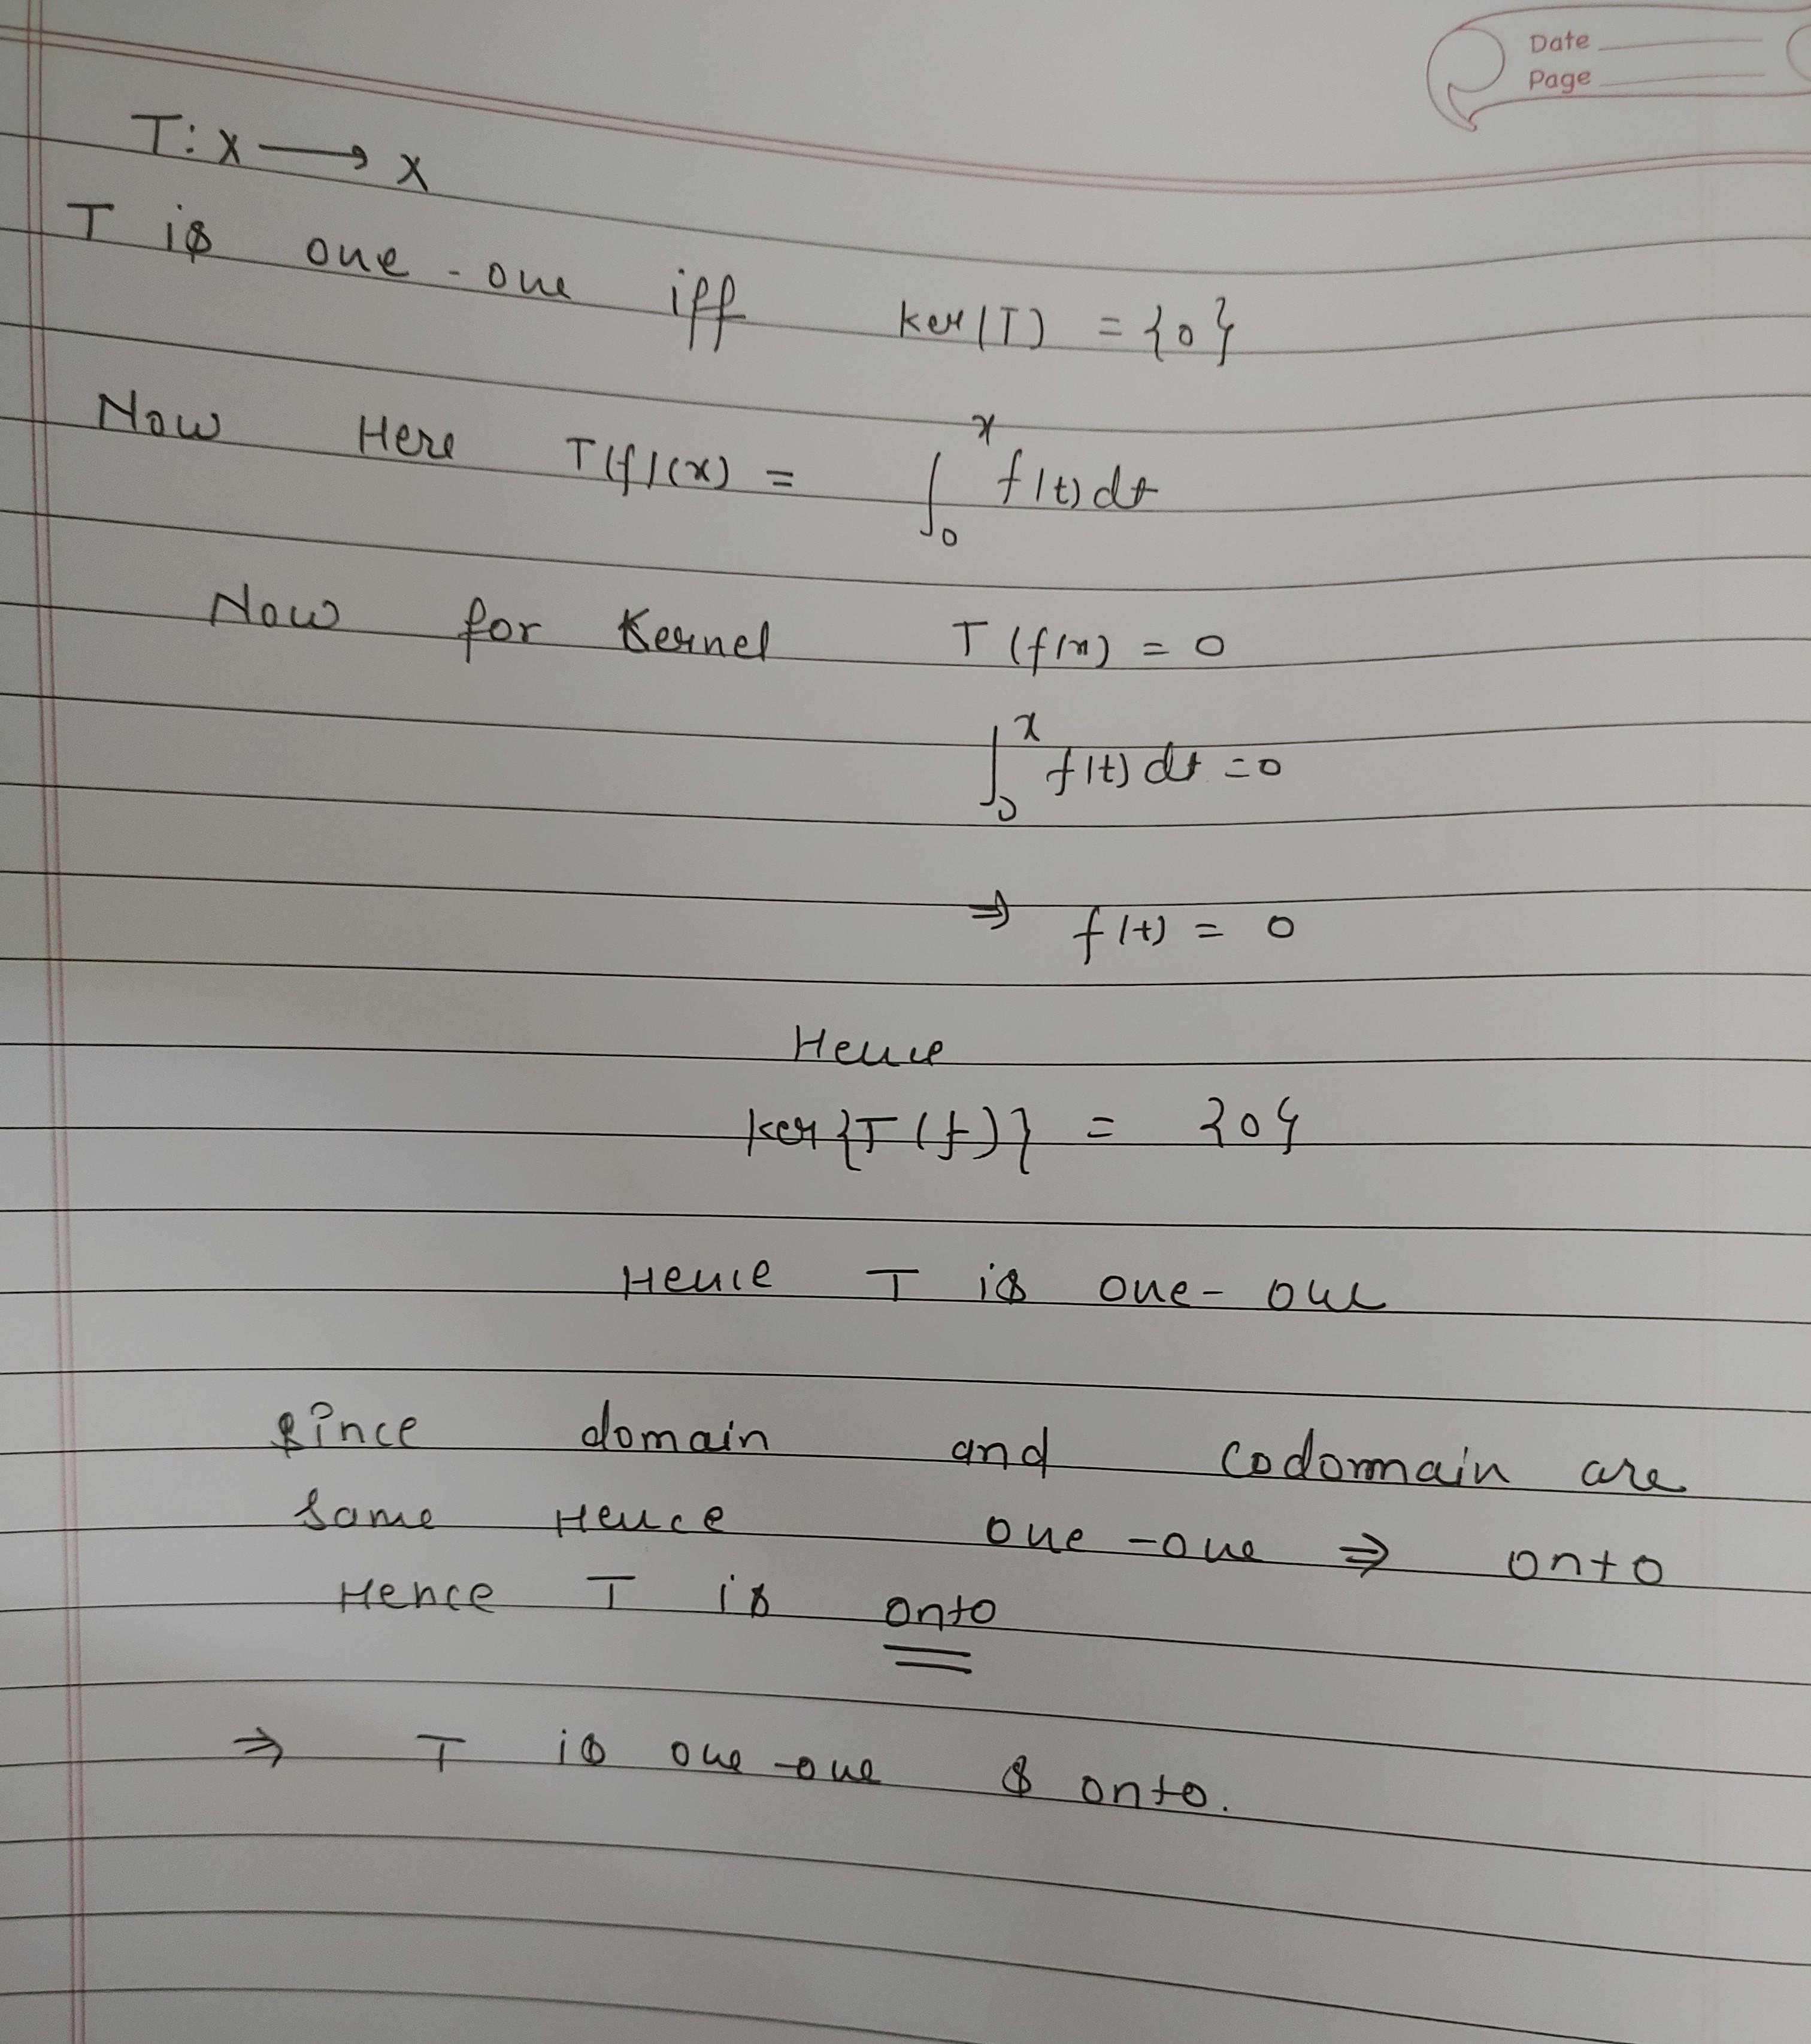 Date
Page
T: X ⟶ X
T is one-one iff ker(T) = {0}
Now Here T(f)(x) = ∫₀ˣ f(t) dt
Now for Kernel T(f(x)) = 0
∫₀ˣ f(t) dt = 0
⇒ f(t) = 0
Hence
ker{T(f)} = {0}
Hence T is one-one
Since domain and codomain are
same Hence one-one ⇒ onto
Hence T is onto
⇒ T is one-one & onto.